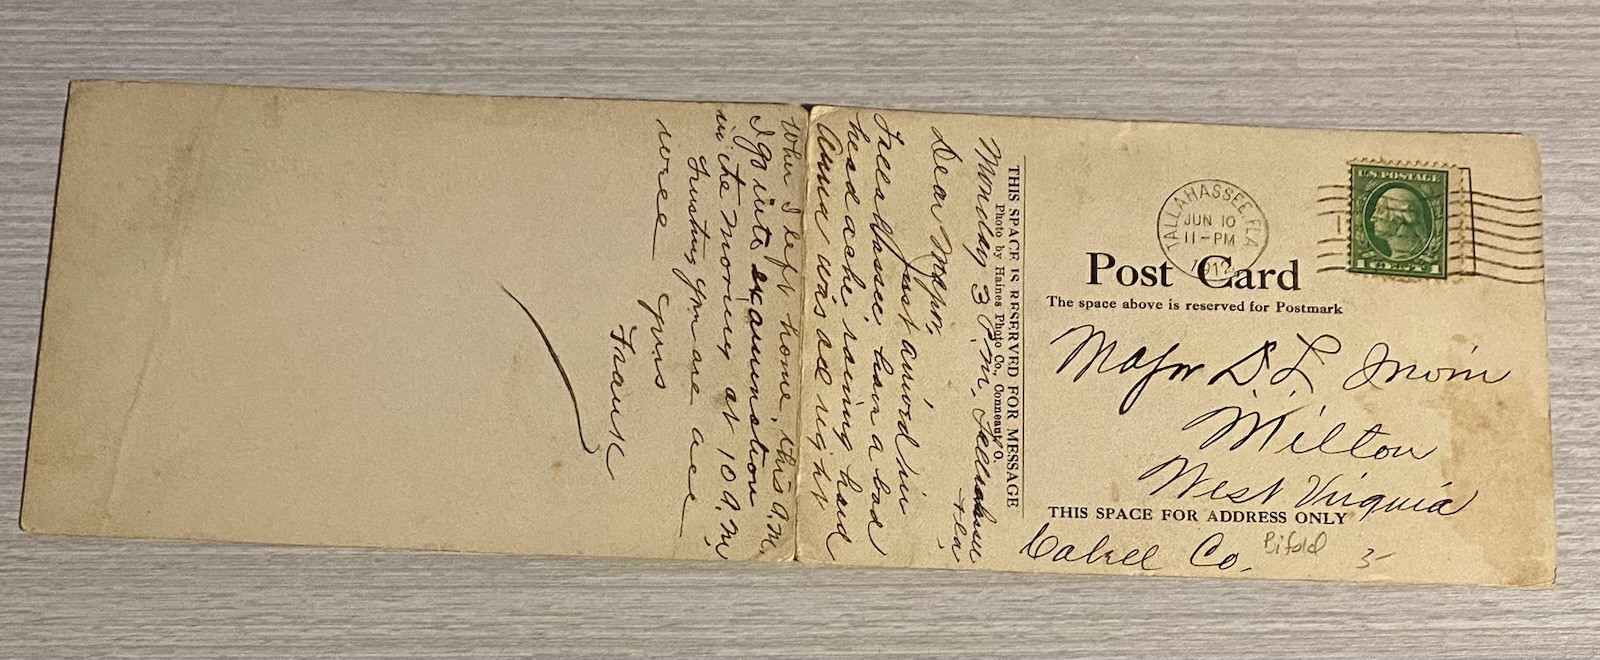 TALLAHASSEE, FLA
JUN 10
11-PM
1912
U.S. POSTAGE
1 CENTS 1
Post Card
The space above is reserved for Postmark
Major D. L. Irwin
Milton
West Virginia
THIS SPACE FOR ADDRESS ONLY
Cabell Co.
Bifold
5-
THIS SPACE IS RESERVED FOR MESSAGE
Photo by Haines Photo Co., Conneaut, O.
Monday 3 P.M. Tallahassee
Fla.
Dear Major,
Just arrived in
Tallahassee have a bad
head ache raining hard
Anna was all right
When I left home, this A.M.
I go into examination
in the morning at 10 A.M.
Trusting you are all
well
Yours
Frank